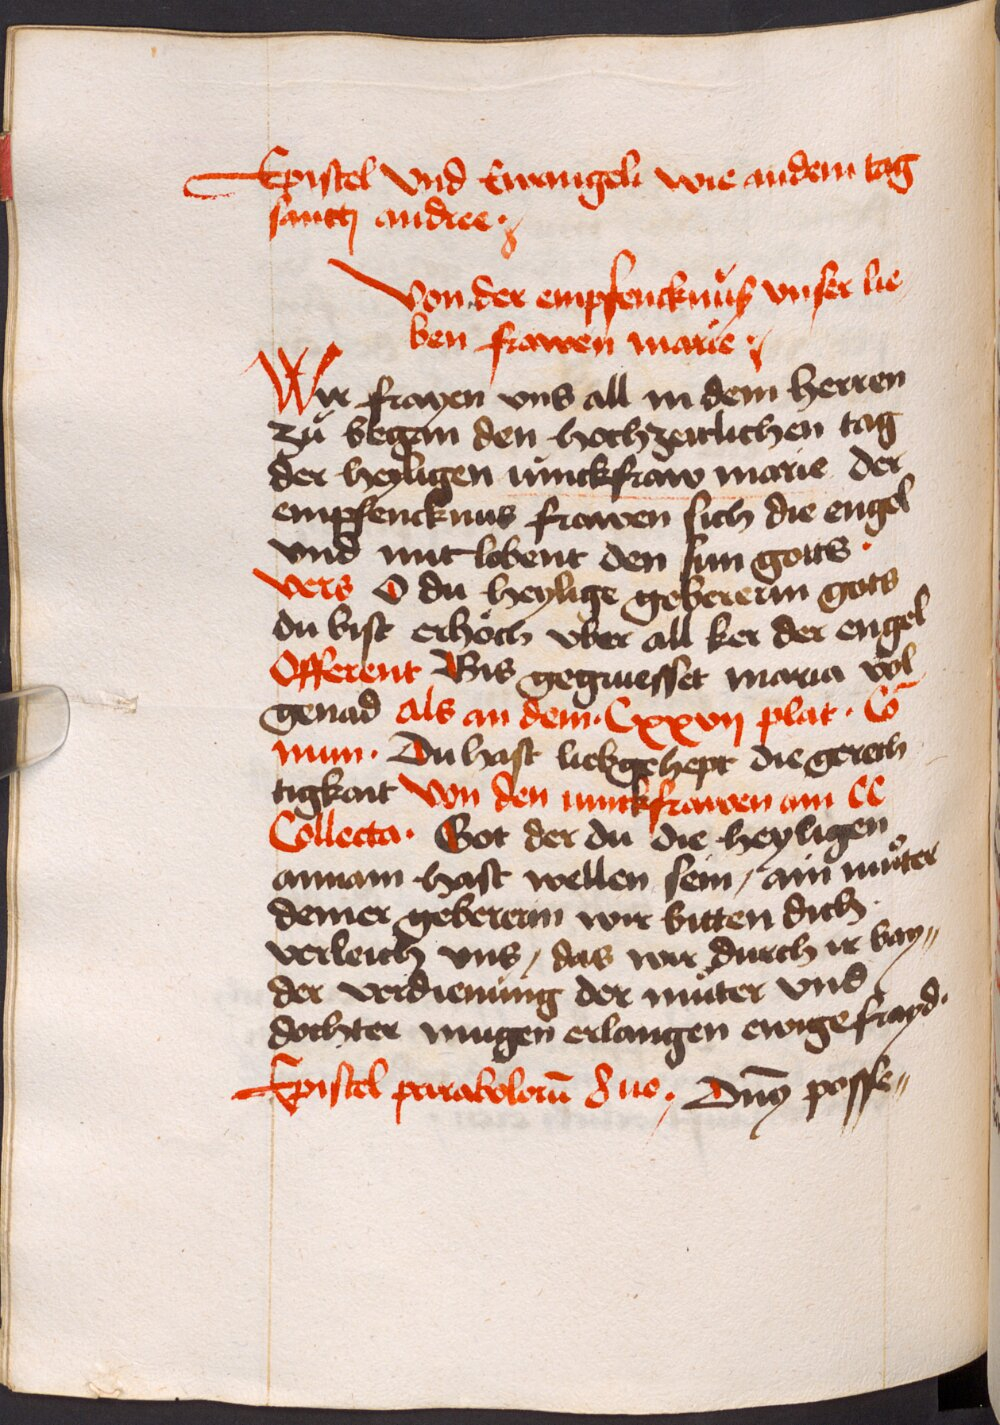 Epistel vnd Ewangeli wie an dem tag
santt andree.
Von der empfencknuͤß vnser lie
ben frawen marie.
Wir frayen vns all in dem herren
zuͦ began den hochzeitlichen tag
der heyligen iunckfraw marie der
empfencknus frawen sich die engel
vnd mit lobent den sun gotts.
vers O du heylige gebererin gots
du bist erhoͤch vber all ker der engel
Offerent Bis gegruesset maria vol
genad als an dem. Cxxvij plat. Cō
mun. Du hast liebgehept die gerech
tigkait von den iunckfrawen am CC
Collecta. Got der du die heyligen
annam hast wellen sein / ain muͦter
deiner gebererin wir bitten dich
verleich vns / das wir durch ir bay„
der verdienung der muͦter vnd
dochter mugen erlangen ewige frayd.
Epistel parabolorū 8 uo. Dn̄s posse„